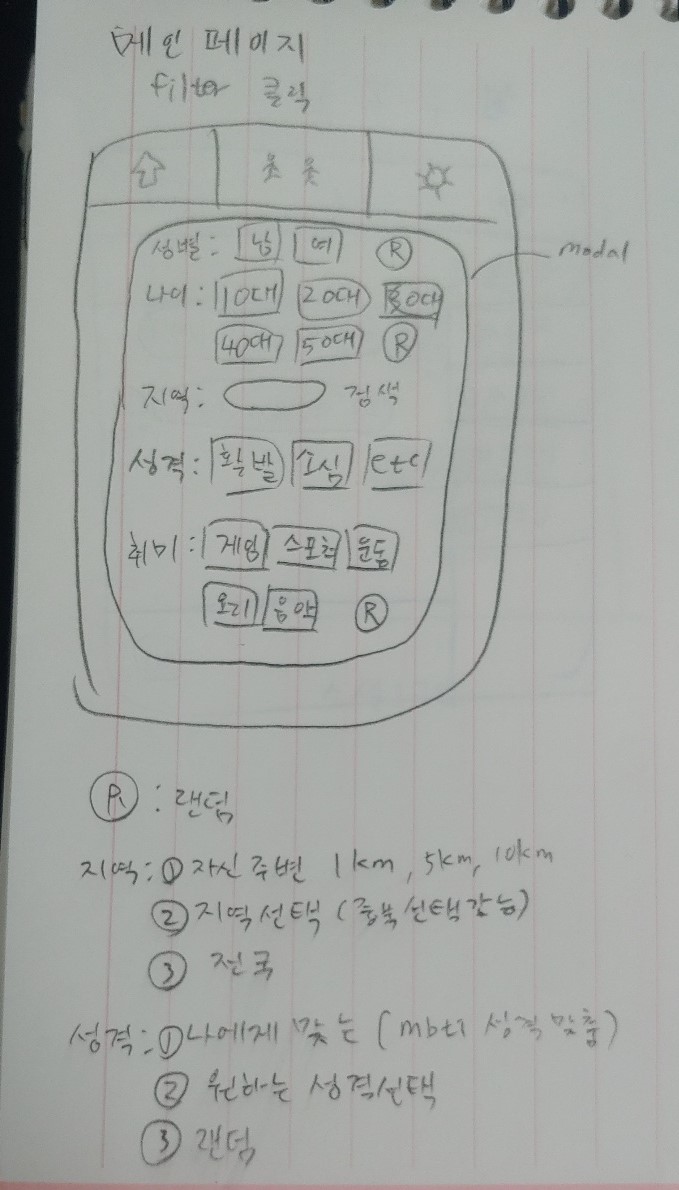 메인 페이지
filter 클릭
성별: 남 여 R
modal
나이: 10대 20대 30대
40대 50대 R
지역: 검색
성격: 활발 소심 etc
취미: 게임 스포츠 운동
요리 음악 R
R : 랜덤
지역: ① 자신 주변 1km, 5km, 10km
② 지역선택 (중복선택가능)
③ 전국
성격: ① 나에게 맞는 (mbti 성격 맞춤)
② 원하는 성격선택
③ 랜덤